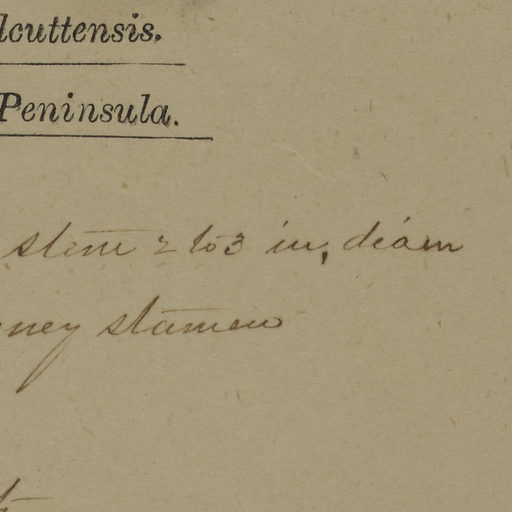 lcuttensis.
Peninsula.
stem 2 to 3 in, diam
ney stamen